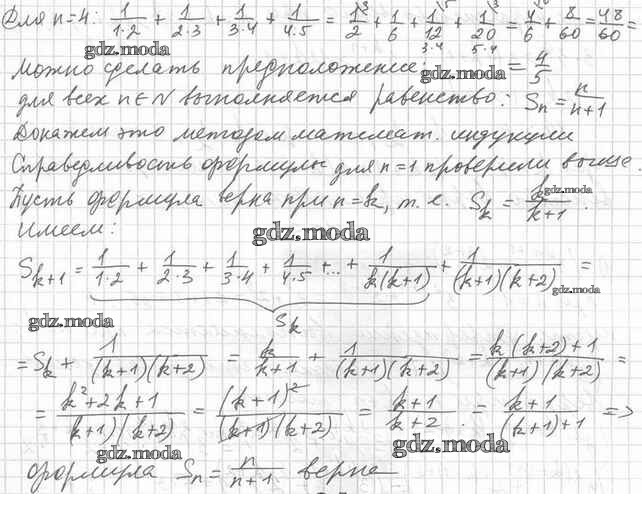 Для n=4: 1/(1·2) + 1/(2·3) + 1/(3·4) + 1/(4·5) = 1/2 + 1/6 + 1/12 + 1/20 = 4/6 + 8/60 = 48/60 =
gdz.moda
Можно сделать предположение: = 4/5
gdz.moda
для всех n∈N выполняется равенство: Sn = n/(n+1)
Докажем это методом математ. индукции
Справедливость формулы для n=1 проверили выше.
Пусть формула верна при n=k, т. е. Sk = k/(k+1).
gdz.moda
Имеем:
gdz.moda
Sk+1 = 1/(1·2) + 1/(2·3) + 1/(3·4) + 1/(4·5) + ... + 1/(k(k+1)) + 1/((k+1)(k+2)) =
gdz.moda
gdz.moda
Sk
= Sk + 1/((k+1)(k+2)) = k/(k+1) + 1/((k+1)(k+2)) = (k(k+2)+1)/((k+1)(k+2)) =
= (k²+2k+1)/(k+1)(k+2) = (k+1)²/((k+1)(k+2)) = (k+1)/(k+2) = (k+1)/((k+1)+1) =>
gdz.moda
gdz.moda
формула Sn = n/(n+1) верна